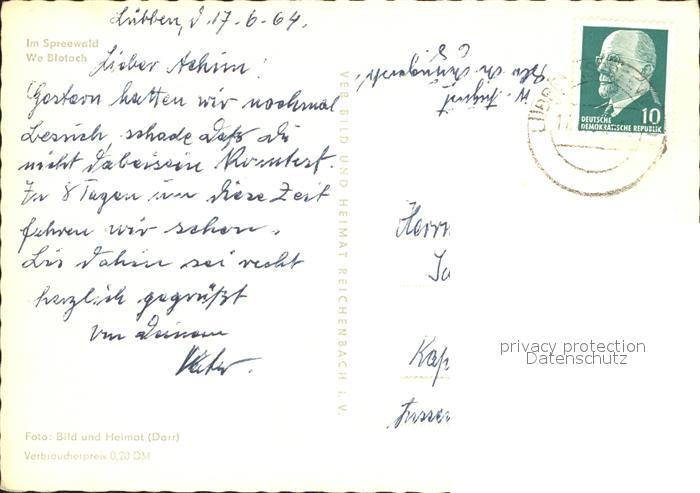 Lübben, d 17.6.64.
Im Spreewald
We Blotach
Lieber Achim!
Gestern hatten wir nochmal
Besuch schade daß du
nicht dabeisein konntest.
In 8 Tagen um diese Zeit
fahren wir schon.
Bis dahin sei recht
herzlich gegrüßt
von Deinem
Vater.
Foto: Bild und Heimat (Darr)
Verbraucherpreis 0,20 DM
VEB BILD UND HEIMAT REICHENBACH i. V.
10
DEUTSCHE
DEMOKRATISCHE REPUBLIK
Herrn
Kap
privacy protection
Datenschutz